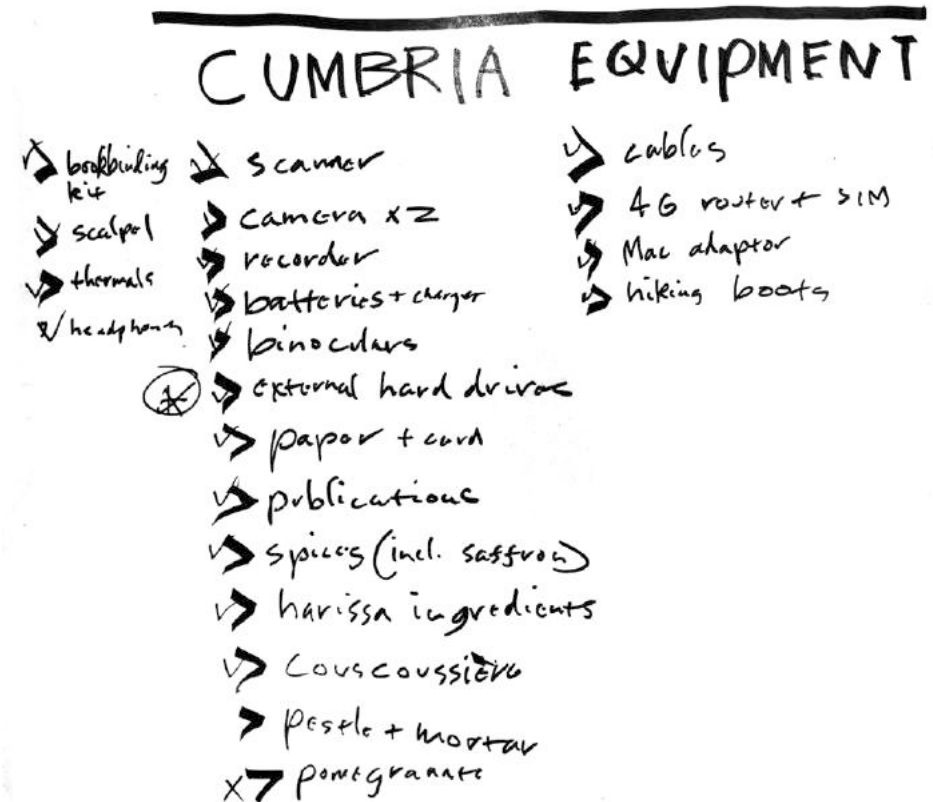 CUMBRIA EQUIPMENT
bookbinding
kit
scalpel
thermals
headphones
scanner
camera x2
recorder
batteries + charger
binoculars
external hard drives
paper + card
publications
spices (incl. saffron)
harissa ingredients
couscoussière
pestle + mortar
x pomegranate
cables
4G router + SIM
Mac adaptor
hiking boots